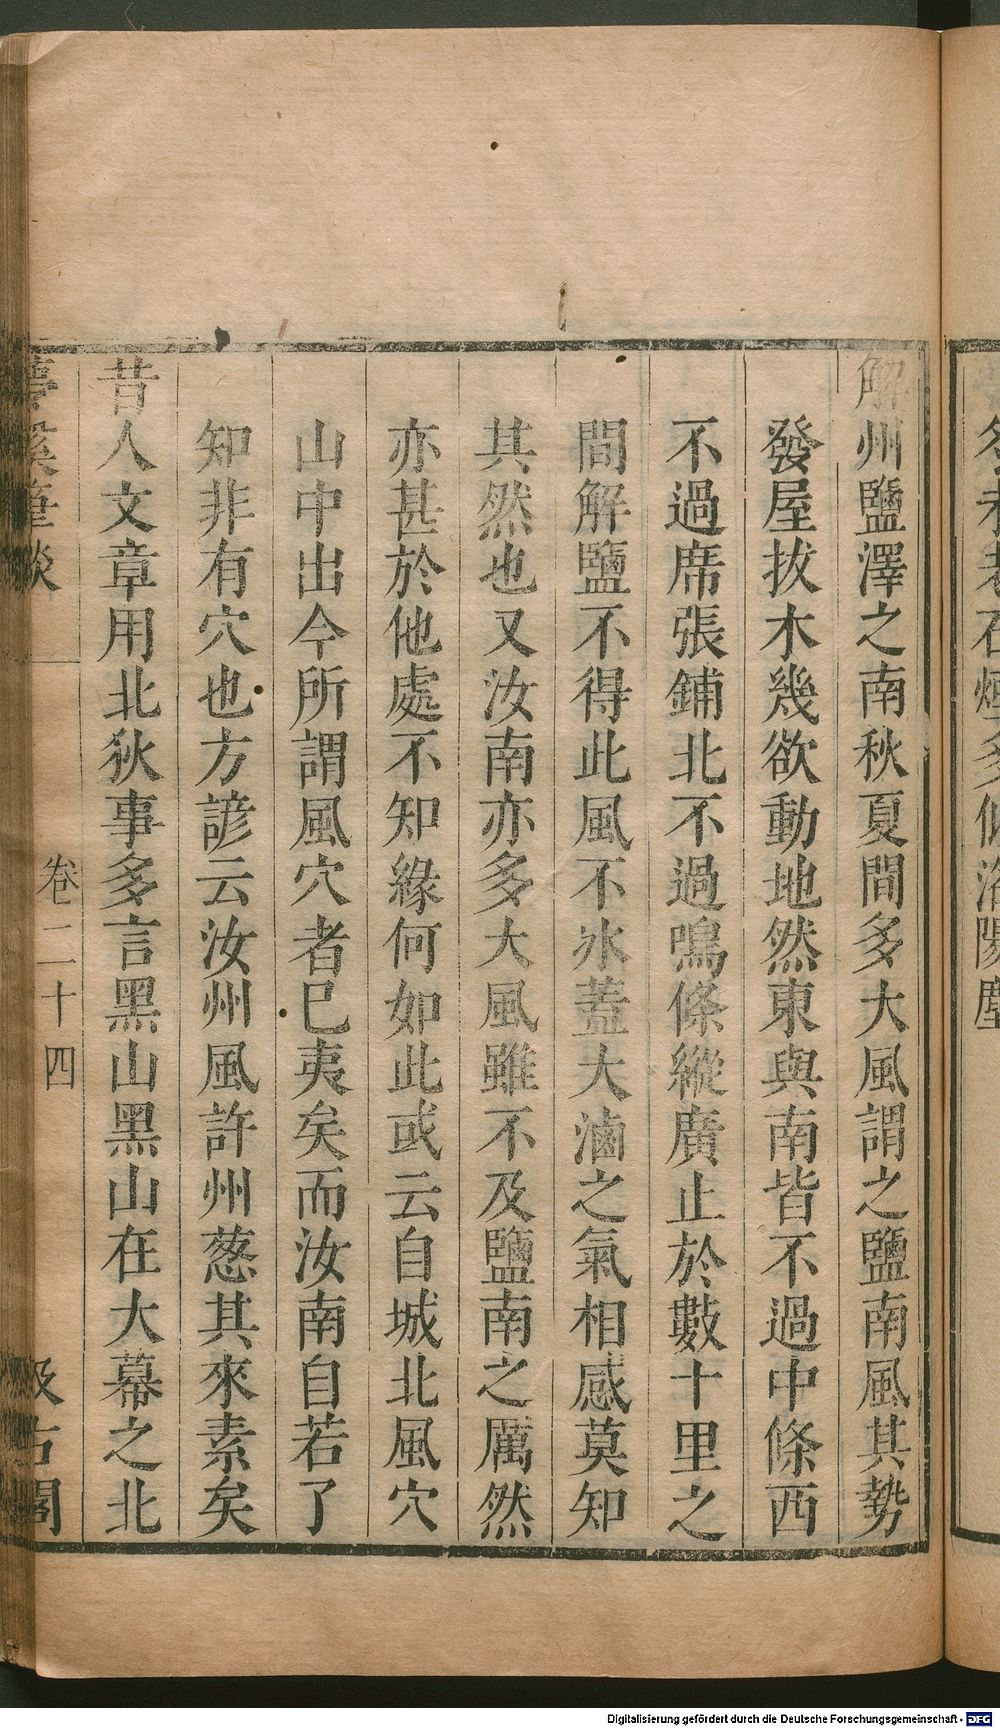 解州鹽澤之南秋夏間多大風謂之鹽南風其勢
發屋拔木幾欲動地然東與南皆不過中條西
不過席張鋪北不過鳴條縱廣止於數十里之
間解鹽不得此風不冰蓋大滷之氣相感莫知
其然也又汝南亦多大風雖不及鹽南之厲然
亦甚於他處不知緣何如此或云自城北風穴
山中出今所謂風穴者已夷矣而汝南自若了
知非有穴也方諺云汝州風許州蔥其來素矣
昔人文章用北狄事多言黑山黑山在大幕之北
夢溪筆談 卷二十四 汲古閣
Digitalisierung gefördert durch die Deutsche Forschungsgemeinschaft - DFG